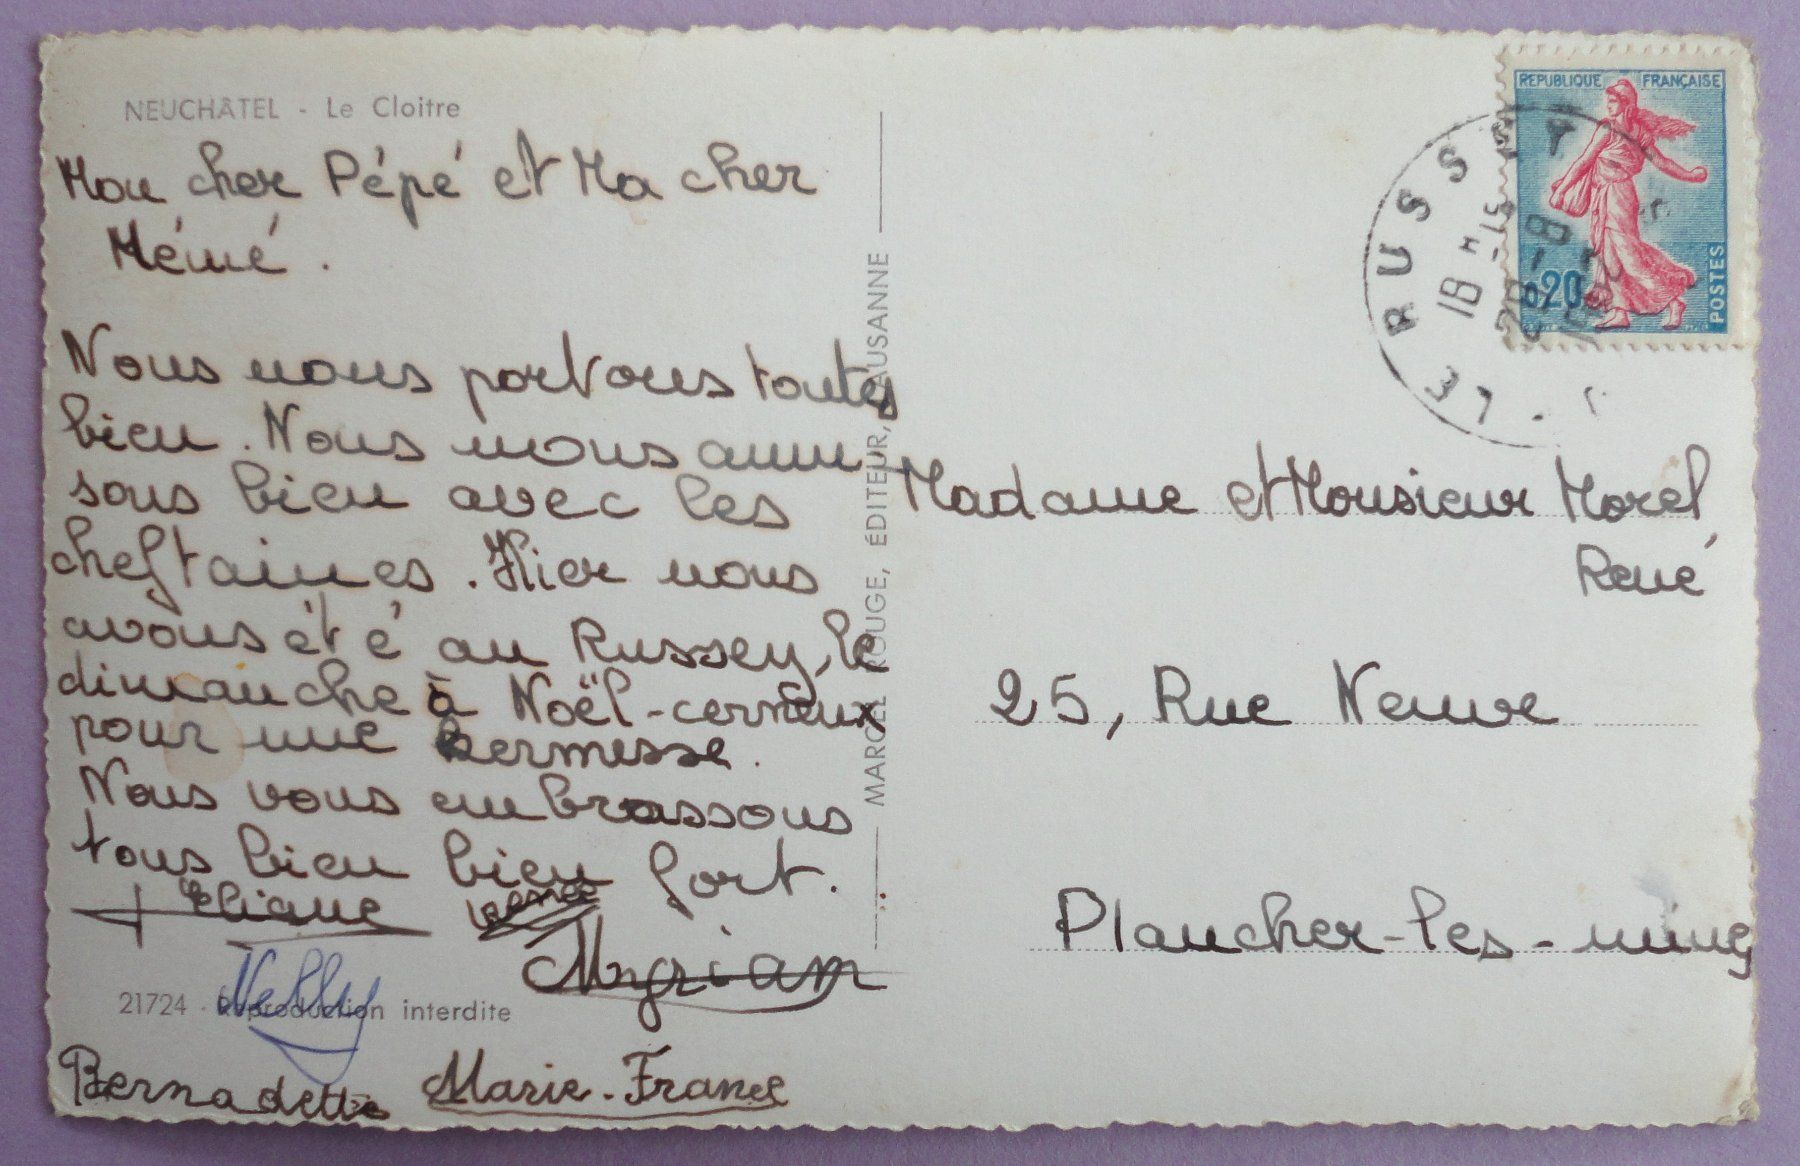 NEUCHÂTEL - Le Cloitre
Mon cher Pépé et Ma cher
Mémé.
Nous nous portons toutes
bien. Nous nous amu
sons bien avec les
cheftaines. Hier nous
avons été au Russey, le
dimanche à Noël-cerneux
pour une kermesse.
Nous vous embrassons
tous bien bien fort.
Eliane
Myriam
Nelly
21724 - Reproduction interdite
Bernadette Marie-France
MARCEL ROUGE, ÉDITEUR, LAUSANNE
REPUBLIQUE FRANÇAISE
0,20
POSTES
LE RUSSEY
18 H 15
Madame et Monsieur Morel
René
25, Rue Neuve
Plancher-les-mines